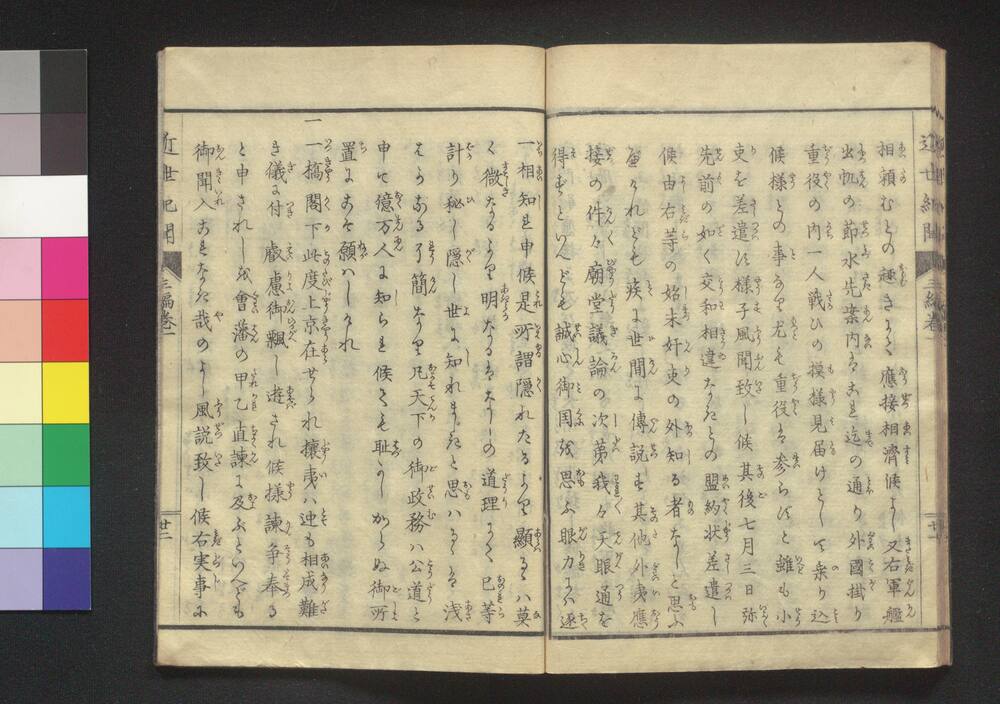 相頼むとの趣きにて應接相濟候よし又右軍艦
出帆の節水先案内は是迄の通り外國掛り
重役の内一人戰ひの摸樣見届けとして乗り込
候様との事なれど尤も重役は参らずと雖も小
吏を差遣はす様子風聞致し候其後七月三日弥
先前の如く交和相違なきとの盟約状差遣し
候由右等の始末奸吏の外知る者なしと思ふ
べけれども疾に世間に傳説す其他外夷應
接の件々廟堂議論の次第我々天眼通を
得ずといへども誠心御国を思ふ眼力には逐
近世紀聞
三編巻一
一相知れ申候是所謂隠れたるより顯るゝハ莫
く微なるより明なるはなしの道理にて己等
計り秘し隠し世に知れまじきと思ハるゝは浅
はかなる了簡なり凡天下の御政務ハ公道と
申せ億万人に知られ候ても耻しからぬ御所
置にこそ願ハしけれ
一 一橋閣下此度上京在せられ攘夷ハ迚も相成難
き儀に付叡慮御飜し遊され候様諫争奉る
と申されしを會藩の甲乙直諫に及ぶといへども
御聞入これなき哉のよし風説致し候右実事に
近世紀聞
三編巻一
廿二